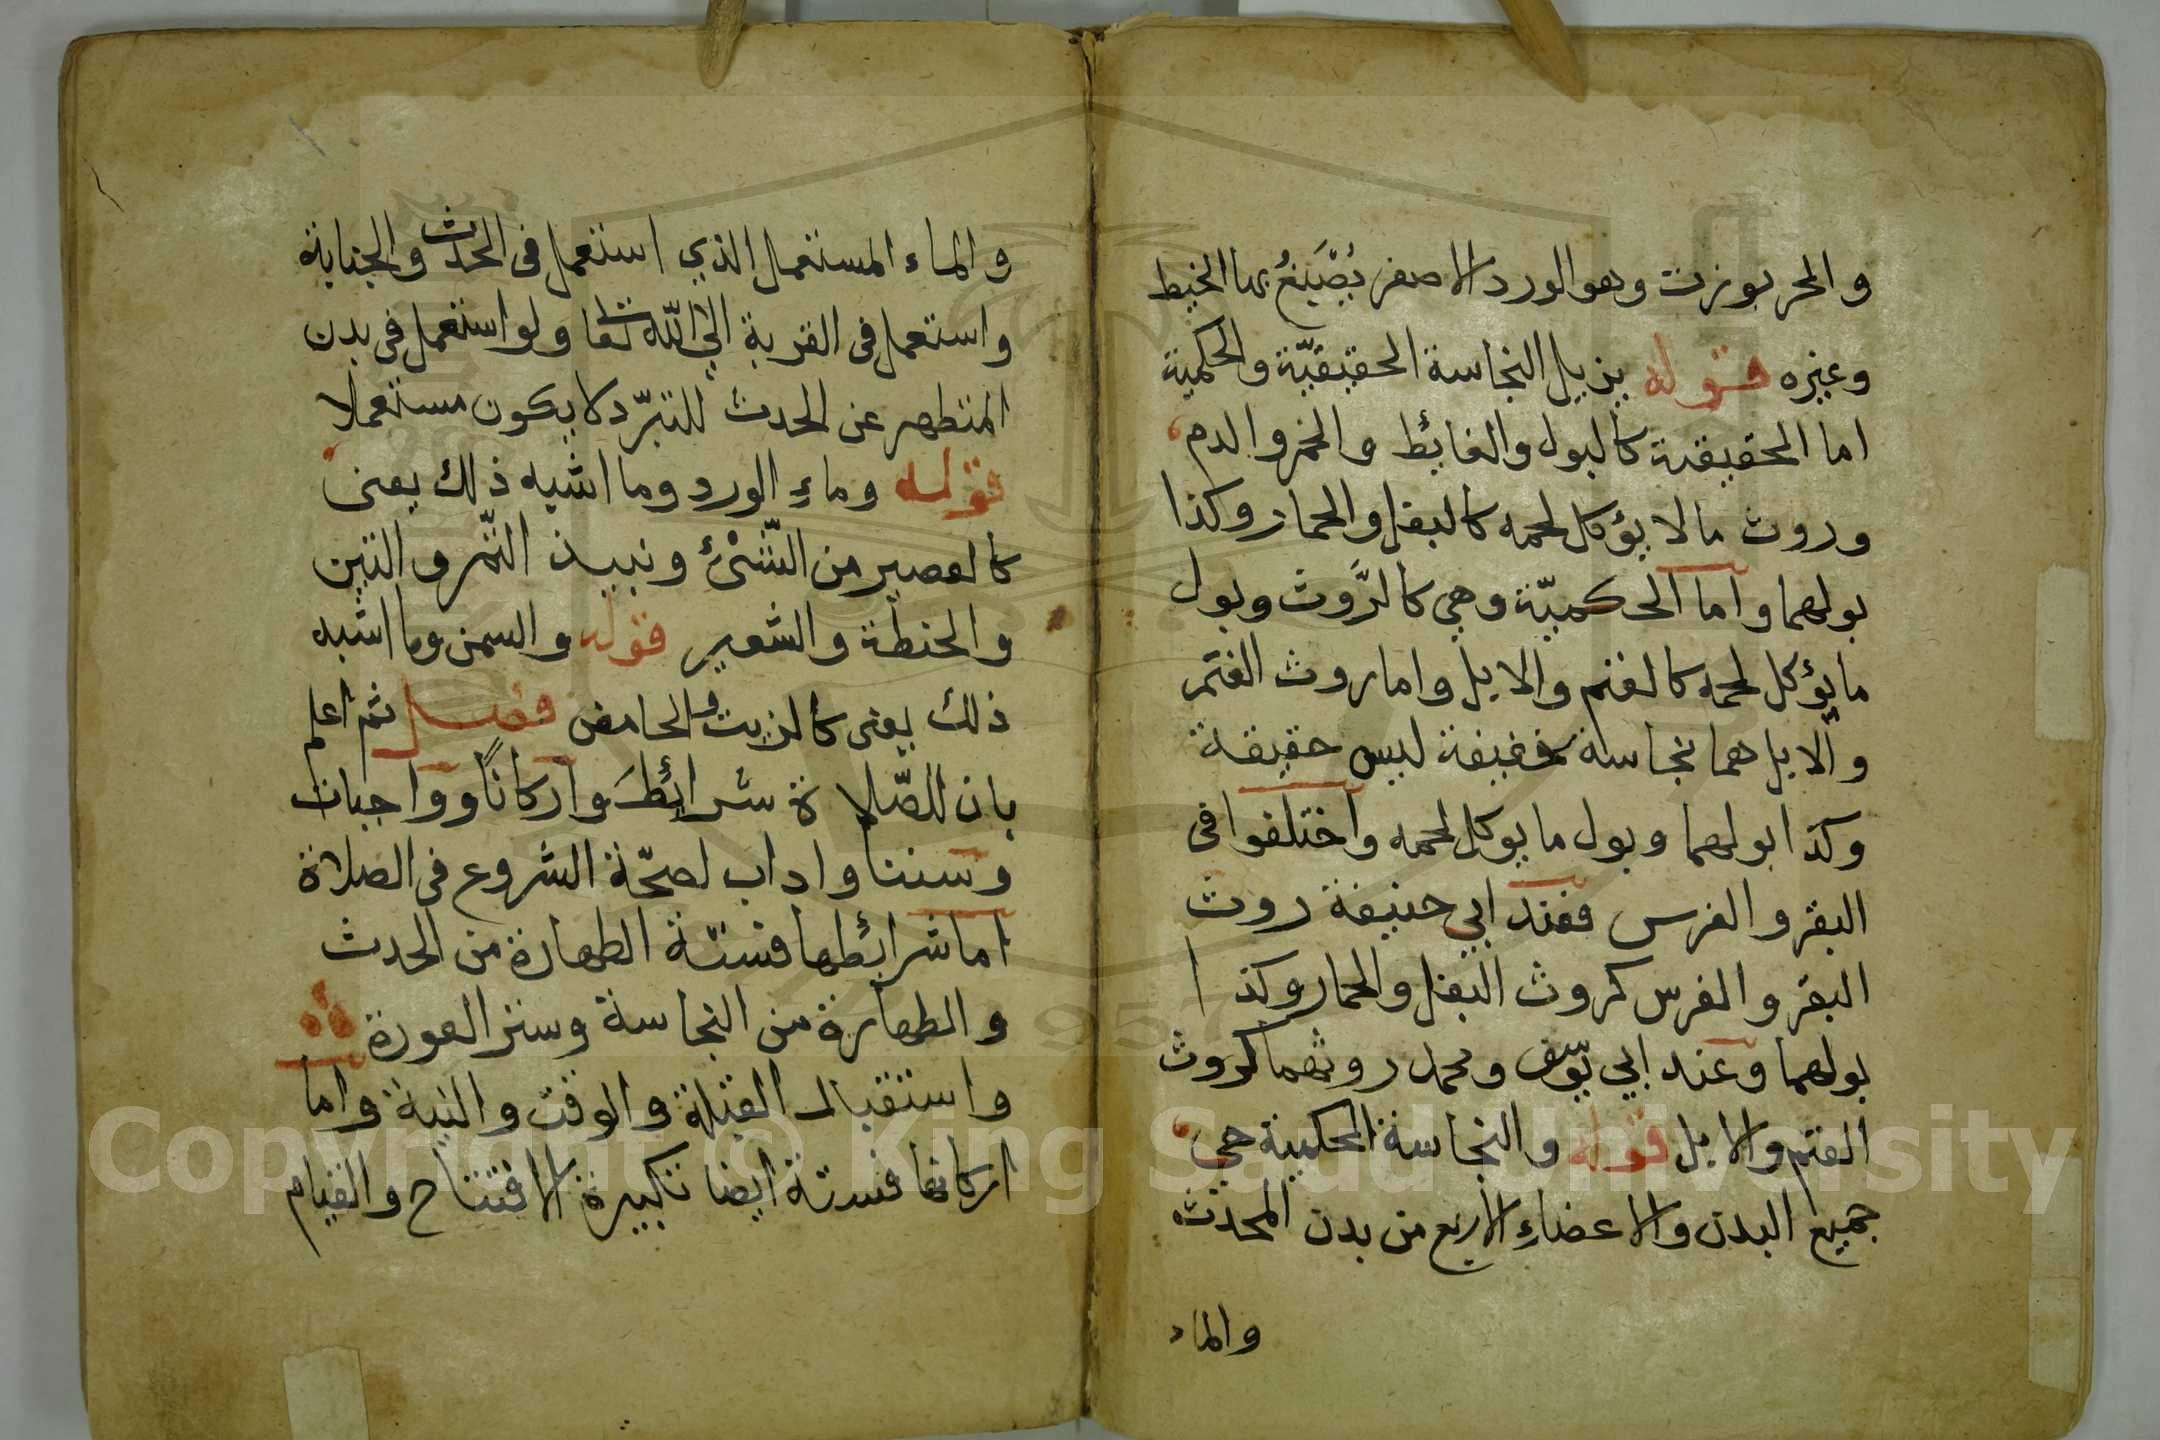 والحربوزت وهو الورد الاصفر يُصْبَغُ بها الخيط
وغيره قوله يزيل النجاسة الحقيقيّة والحكمية
اما الحقيقية كالبول والغائط والخمر والدم
وروث ما لا يؤكل لحمه كالبغل والحمار وكذا
بولهما واما الحكميّة وهي كالرَّوث وبول
ما يؤكل لحمه كالغنم والابل واما روث الغنم
والابل هما نجاسة خفيفة ليس حقيقة
وكذا بولهما وبول ما يوكل لحمه واختلفوا في
البقر والفرس فعند ابي حنيفة روث
البقر والفرس كروث البغل والحمار وكذا
بولهما وعند ابي يوّسف ومحمد روثهما كروث
الغنم والابل قوله والنجاسة الحكمية هي
جميع البدن والاعضاءِ الاربع من بدن المحدث
والماء
والماء المستعمل الذي استعمل في الحدث والجنابة
واستعمل في القربة الي اللّه تعا ولو استعمل في بدن
المتطهر عن الحدث للتبرّد لا يكون مستعملا
قوله وماءِ الورد وما اشبه ذلك يعني
كالعصير من الشّئْ ونبيذ التّمر والتين
والحنطة والشعير قوله والسمن وما اشبه
ذلك يعني كالزيت والحامض فصل ثم اعلم
بان للصّلاة شرائطَ واركانًا وواجبات
وسننا واداب لصحّة الشروع في الصلاة
اما شرائطها فستّة الطهارة من الحدث
والطهارة من النجاسة وستر العورة
واستقبال القبلة والوقت والنية واما
اركانها فستة ايضا تكبيرة الافتتاح والقيام
Copyright © King Saud University
1957